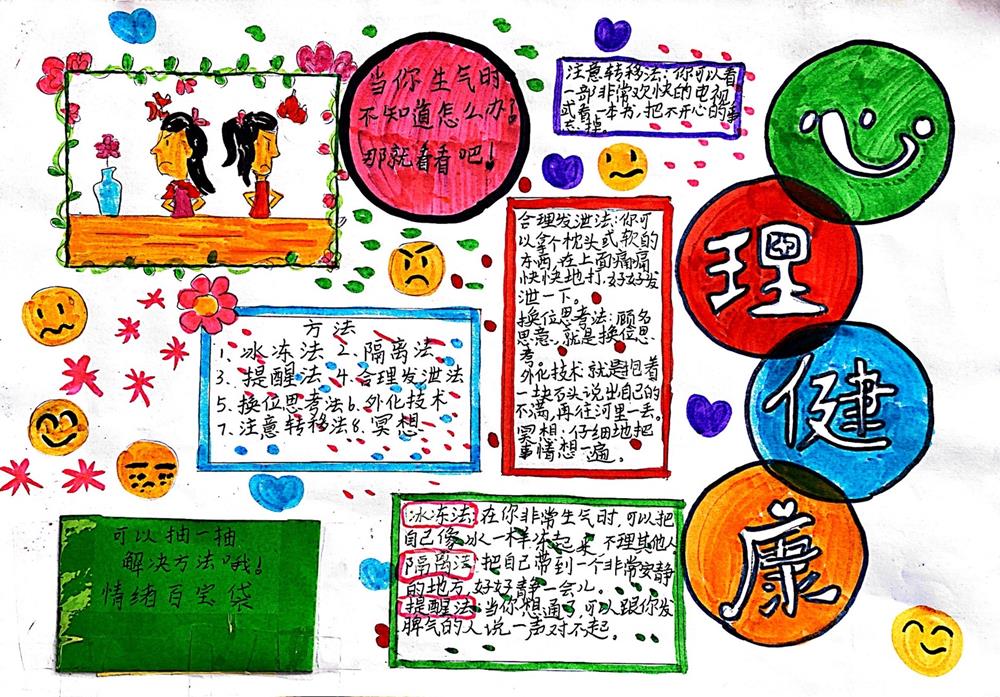 当你生气时
不知道怎么办？
那就看看吧！
注意转移法：你可以看
一部非常欢快的电视
式看一本书，把不开心的事
忘掉。
心
理
健
康
合理发泄法：你可
以拿个枕头式软的
东西，在上面痛痛
快快地打，好好发
泄一下。
换位思考法：顾名
思意，就是换位思
考。
外化技术：就是抱着
一块石头说出自己的
不满，再往河里一丢。
冥想：仔细地把
事情想一遍。
方法
1、冰冻法 2、隔离法
3、提醒法 4、合理发泄法
5、换位思考法 6、外化技术
7、注意转移法 8、冥想
冰冻法：在你非常生气时，可以把
自己像冰一样冻起来，不理其他人
隔离法：把自己带到一个非常安静
的地方，好好静一会儿。
提醒法：当你想通了，可以跟你发
脾气的人说一声对不起。
可以抽一抽
解决方法哦！
情绪百宝袋